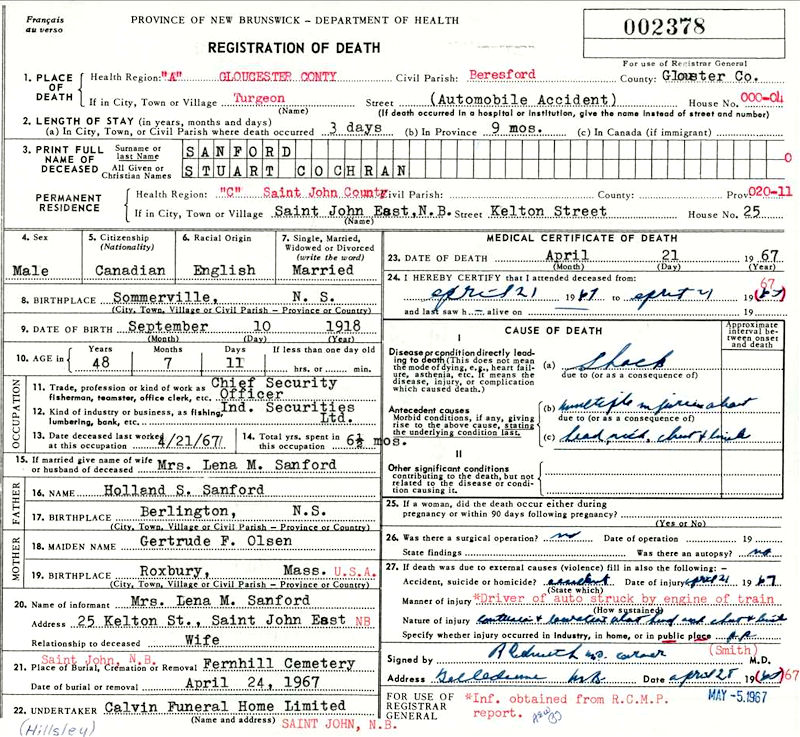 Français
au verso
PROVINCE OF NEW BRUNSWICK – DEPARTMENT OF HEALTH
002378
REGISTRATION OF DEATH
For use of Registrar General
1. PLACE OF DEATH
Health Region: "A" GLOUCESTER CONTY Civil Parish: Beresford County: Glouster Co.
If in City, Town or Village Turgeon Street (Automobile Accident) House No. 000-04
(Name) (If death occurred in a hospital or institution, give the name instead of street and number)
2. LENGTH OF STAY (in years, months and days)
(a) In City, Town, or Civil Parish where death occurred 3 days (b) In Province 9 mos. (c) In Canada (if immigrant)
3. PRINT FULL NAME OF DECEASED
Surname or last Name SANFORD
All Given or Christian Names STUART COCHRAN 0
PERMANENT RESIDENCE
Health Region: "C" Saint John County Civil Parish: County: Prov. 020-11
If in City, Town or Village Saint John East, N.B. Street Kelton Street House No. 25
(Name)
4. Sex
Male
5. Citizenship
(Nationality)
Canadian
6. Racial Origin
English
7. Single, Married, Widowed or Divorced
(write the word)
Married
8. BIRTHPLACE Sommerville, N. S.
(City, Town, Village or Civil Parish - Province or Country)
9. DATE OF BIRTH September 10 1918
(Month) (Day) (Year)
10. AGE in Years Months Days If less than one day old
48 7 11 hrs. or min.
OCCUPATION
11. Trade, profession or kind of work as fisherman, teamster, office clerk, etc. Chief Security Officer
12. Kind of industry or business, as fishing, lumbering, bank, etc. Ind. Securities Ltd.
13. Date deceased last worked at this occupation 4/21/67
14. Total yrs. spent in this occupation 6½ mos.
15. If married give name of wife or husband of deceased Mrs. Lena M. Sanford
FATHER
16. NAME Holland S. Sanford
17. BIRTHPLACE Berlington, N.S.
(City, Town, Village or Civil Parish - Province or Country)
MOTHER
18. MAIDEN NAME Gertrude F. Olsen
19. BIRTHPLACE Roxbury, Mass. U.S.A.
(City, Town, Village or Civil Parish - Province or Country)
20. Name of informant Mrs. Lena M. Sanford
Address 25 Kelton St., Saint John East NB
Relationship to deceased Wife
Saint John, N.B.
21. Place of Burial, Cremation or Removal Fernhill Cemetery
Date of burial or removal April 24, 1967
22. UNDERTAKER Calvin Funeral Home Limited
(Name and address) SAINT JOHN, N.B.
(Hillsley)
MEDICAL CERTIFICATE OF DEATH
23. DATE OF DEATH April 21 1967
(Month) (Day) (Year)
24. I HEREBY CERTIFY that I attended deceased from:
67
april 21 1967 to april 21 19(67)
and last saw h alive on 19
CAUSE OF DEATH
Approximate interval between onset and death
I
Disease or condition directly leading to death (This does not mean the mode of dying, e.g., heart failure, asthenia, etc. It means the disease, injury, or complication which caused death.)
(a) Shock
due to (or as a consequence of)
Antecedent causes
Morbid conditions, if any, giving rise to the above cause, stating the underlying condition last.
(b) multiple injuries about
due to (or as a consequence of)
(c) head, chest &
II
Other significant conditions
contributing to the death, but not related to the disease or condition causing it.
25. If a woman, did the death occur either during pregnancy or within 90 days following pregnancy?
(Yes or No)
26. Was there a surgical operation? no Date of operation 19
State findings Was there an autopsy? no
27. If death was due to external causes (violence) fill in also the following: –
Accident, suicide or homicide? accident Date of injury april 21 1967
(State which)
Manner of injury *Driver of auto struck by engine of train
(How sustained)
Nature of injury about head and chest &
Specify whether injury occurred in industry, in home, or in public place
Signed by coroner (Smith) M.D.
Address NB Date april 28 19(67) 67
FOR USE OF REGISTRAR GENERAL
*Inf. obtained from R.C.M.P. report.
MAY -5 1967